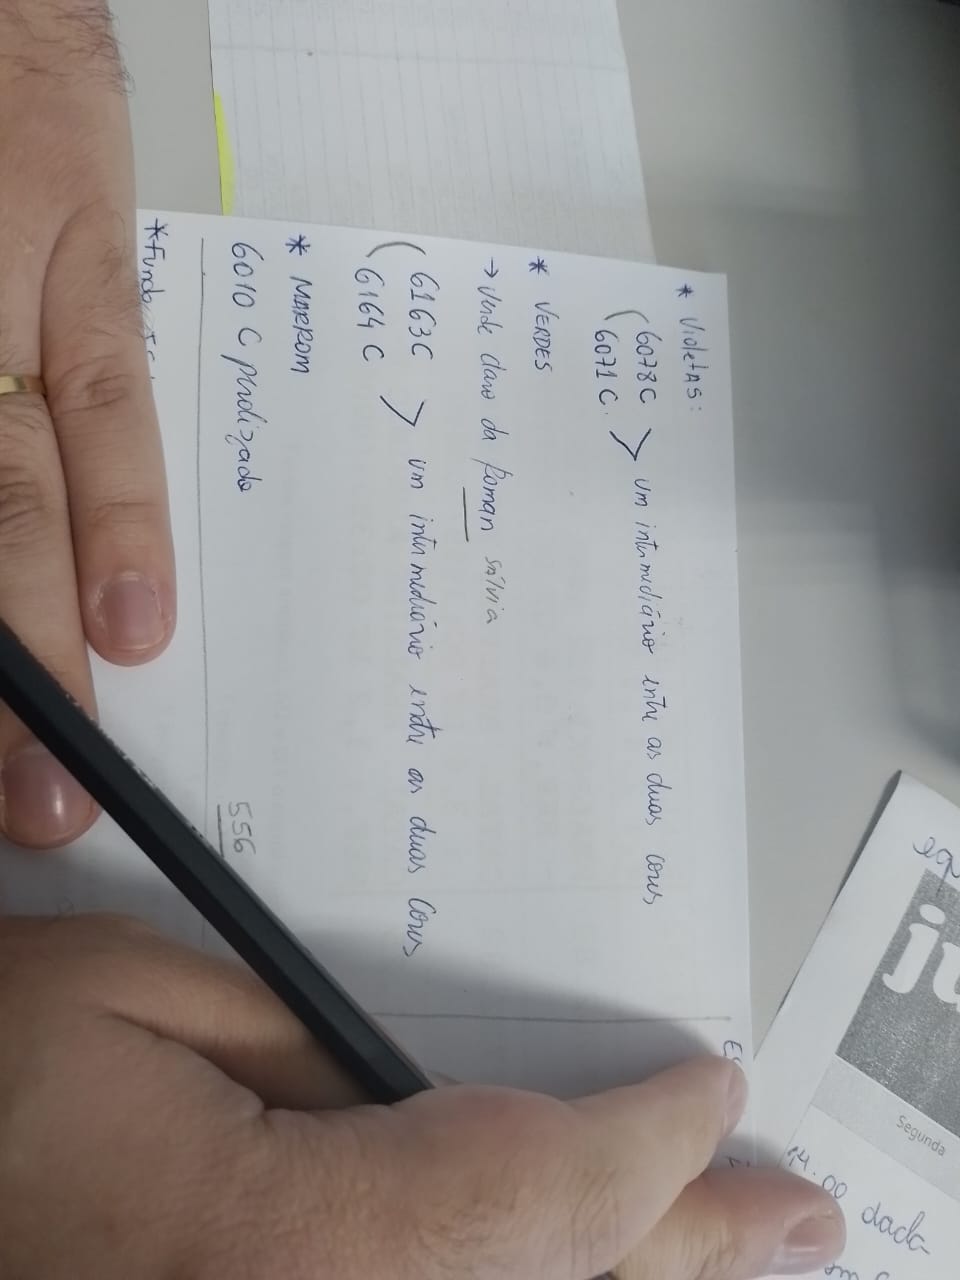 * VioletAS:
6078C
6071C. > um intermediário entre as duas cores
* VERDES
→ Verde claro da Roman sálvia
6163C
6164C > um intermediário entre as duas cores
* MARROM
6010 C perolizado
556
segunda
14:00 dada